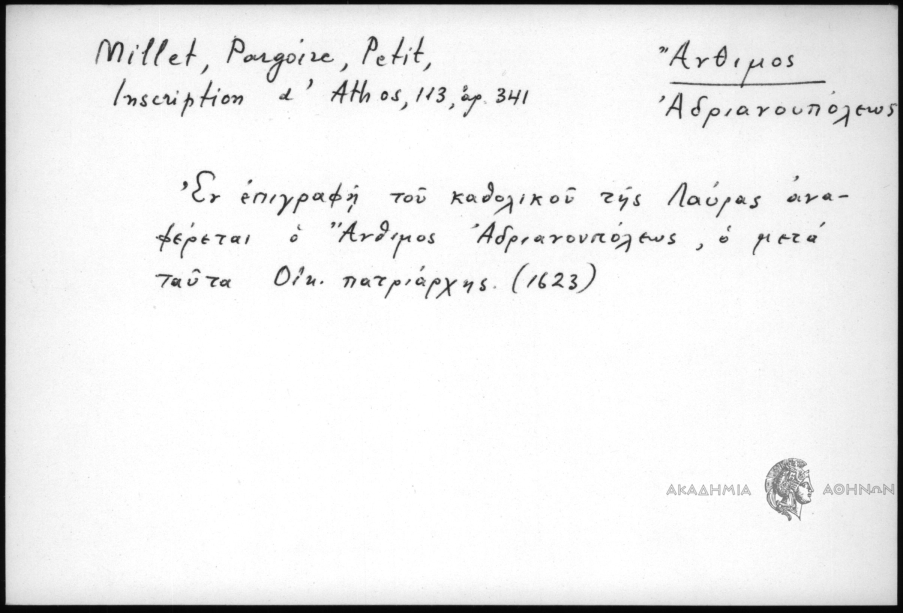 Millet, Pargoire, Petit,
Inscription d' Athos, 113, ἀρ. 341
Ἄνθιμος
Ἀδριανουπόλεως
Ἐν ἐπιγραφῇ τοῦ καθολικοῦ τῆς Λαύρας ἀνα-
φέρεται ὁ Ἄνθιμος Ἀδριανουπόλεως, ὁ μετά
ταῦτα Οἰκ. πατριάρχης. (1623)
ΑΚΑΔΗΜΙΑ ΑΘΗΝΩΝ